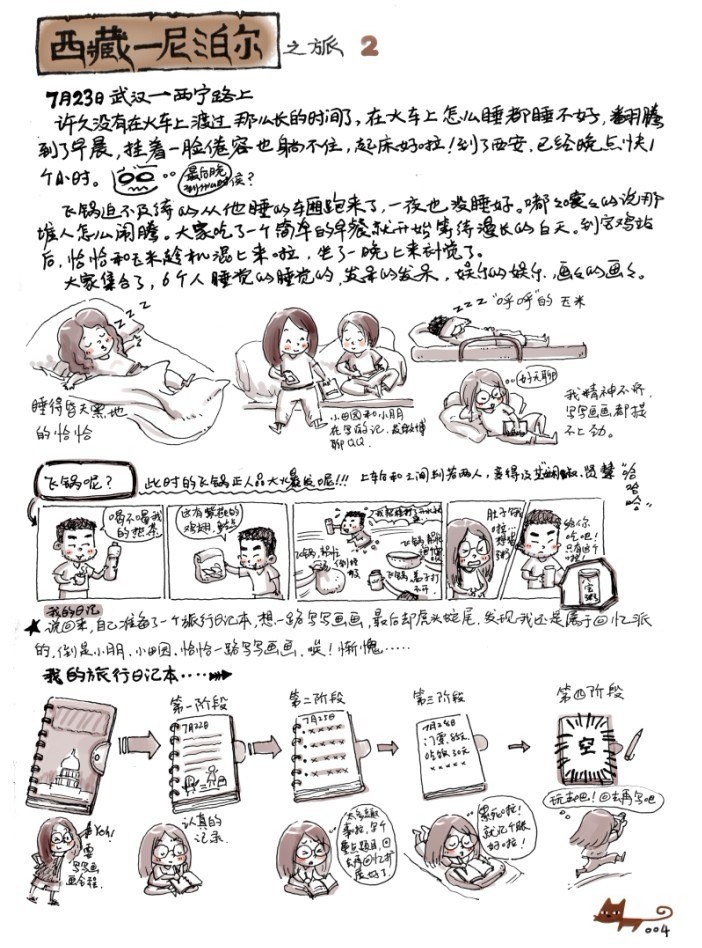 西藏—尼泊尔之旅 2
7月23日 武汉—西宁路上
许久没有在火车上渡过那么长的时间了，在火车上怎么睡都睡不好，翻腾
到了早晨，挂着一脸倦容也躺不住，起床好啦！到了西安，已经晚点快1
个小时。
飞锅迫不及待的从他睡的车厢跑来了，一夜也没睡好。嘟嘟囔囔的说那
堆人怎么闹腾。大家吃了一个简单的早餐就开始等待漫长的白天。到宝鸡站
后，恰恰和玉米趁机混上来啦，坐了一晚上来补觉了。
大家集合了，6个人睡觉的睡觉，发呆的发呆，娱乐的娱乐，画画的画画。
zzz
zzz "呼呼"的玉米
睡得昏天黑地
的恰恰
小田园和小朋
在写游记，发微博
聊QQ.
好无聊
我精神不济，
写写画画都提
不上劲。
飞锅呢？
此时的飞锅正人品大爆发呢!!!
"哈哈哈"
喝不喝我
的热茶
还有
的鸡翅
飞锅
飞锅，盖子打
不开
肚子饿
啦
给你
吃吧！
只有这个
啦！
我的日记
★说回来，自己准备了一个旅行日记本，想一路写写画画，最后却虎头蛇尾，发现我还是属于回忆派
的，倒是小朋、小田园、恰恰一路写写画画，唉！惭愧……
我的旅行日记本……
第一阶段
第二阶段
第三阶段
第四阶段
7月22日
7月23日
7月24日
门票：
吃饭 30元
空
要
写写画
画全程
认真的
记录.
累死啦！
就记个账
好啦！
玩去吧！回去再写吧
004